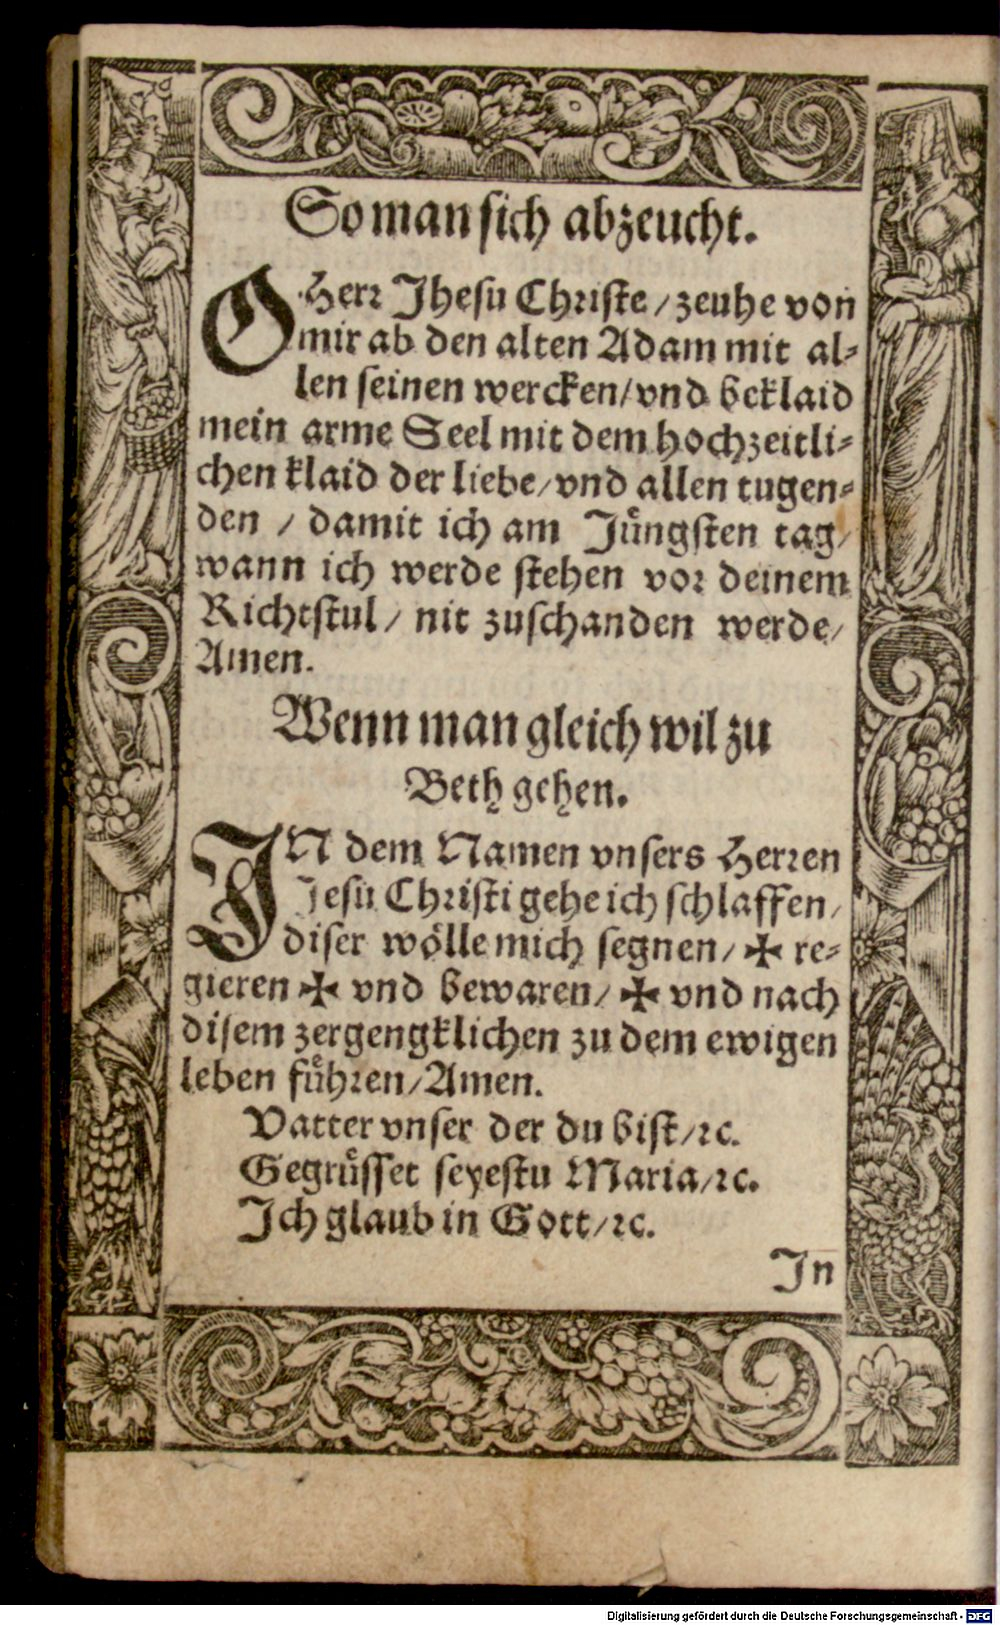 So man sich abzeucht.
O Herr Jhesu Christe / zeuhe von
mir ab den alten Adam mit al-
len seinen wercken / vnd beklaid
mein arme Seel mit dem hochzeitli-
chen klaid der liebe / vnd allen tugen-
den / damit ich am Jüngsten tag /
wann ich werde stehen vor deinem
Richtstul / nit zuschanden werde /
Amen.
Wenn man gleich wil zu
Beth gehen.
IN dem Namen vnsers Herren
Jesu Christi gehe ich schlaffen /
diser wölle mich segnen / ✠ re-
gieren ✠ vnd bewaren / ✠ vnd nach
disem zergengklichen zu dem ewigen
leben führen / Amen.
Vatter vnser der du bist / ꝛc.
Gegrüsset seyestu Maria / ꝛc.
Ich glaub in Gott / ꝛc.
In
Digitalisierung gefördert durch die Deutsche Forschungsgemeinschaft - DFG